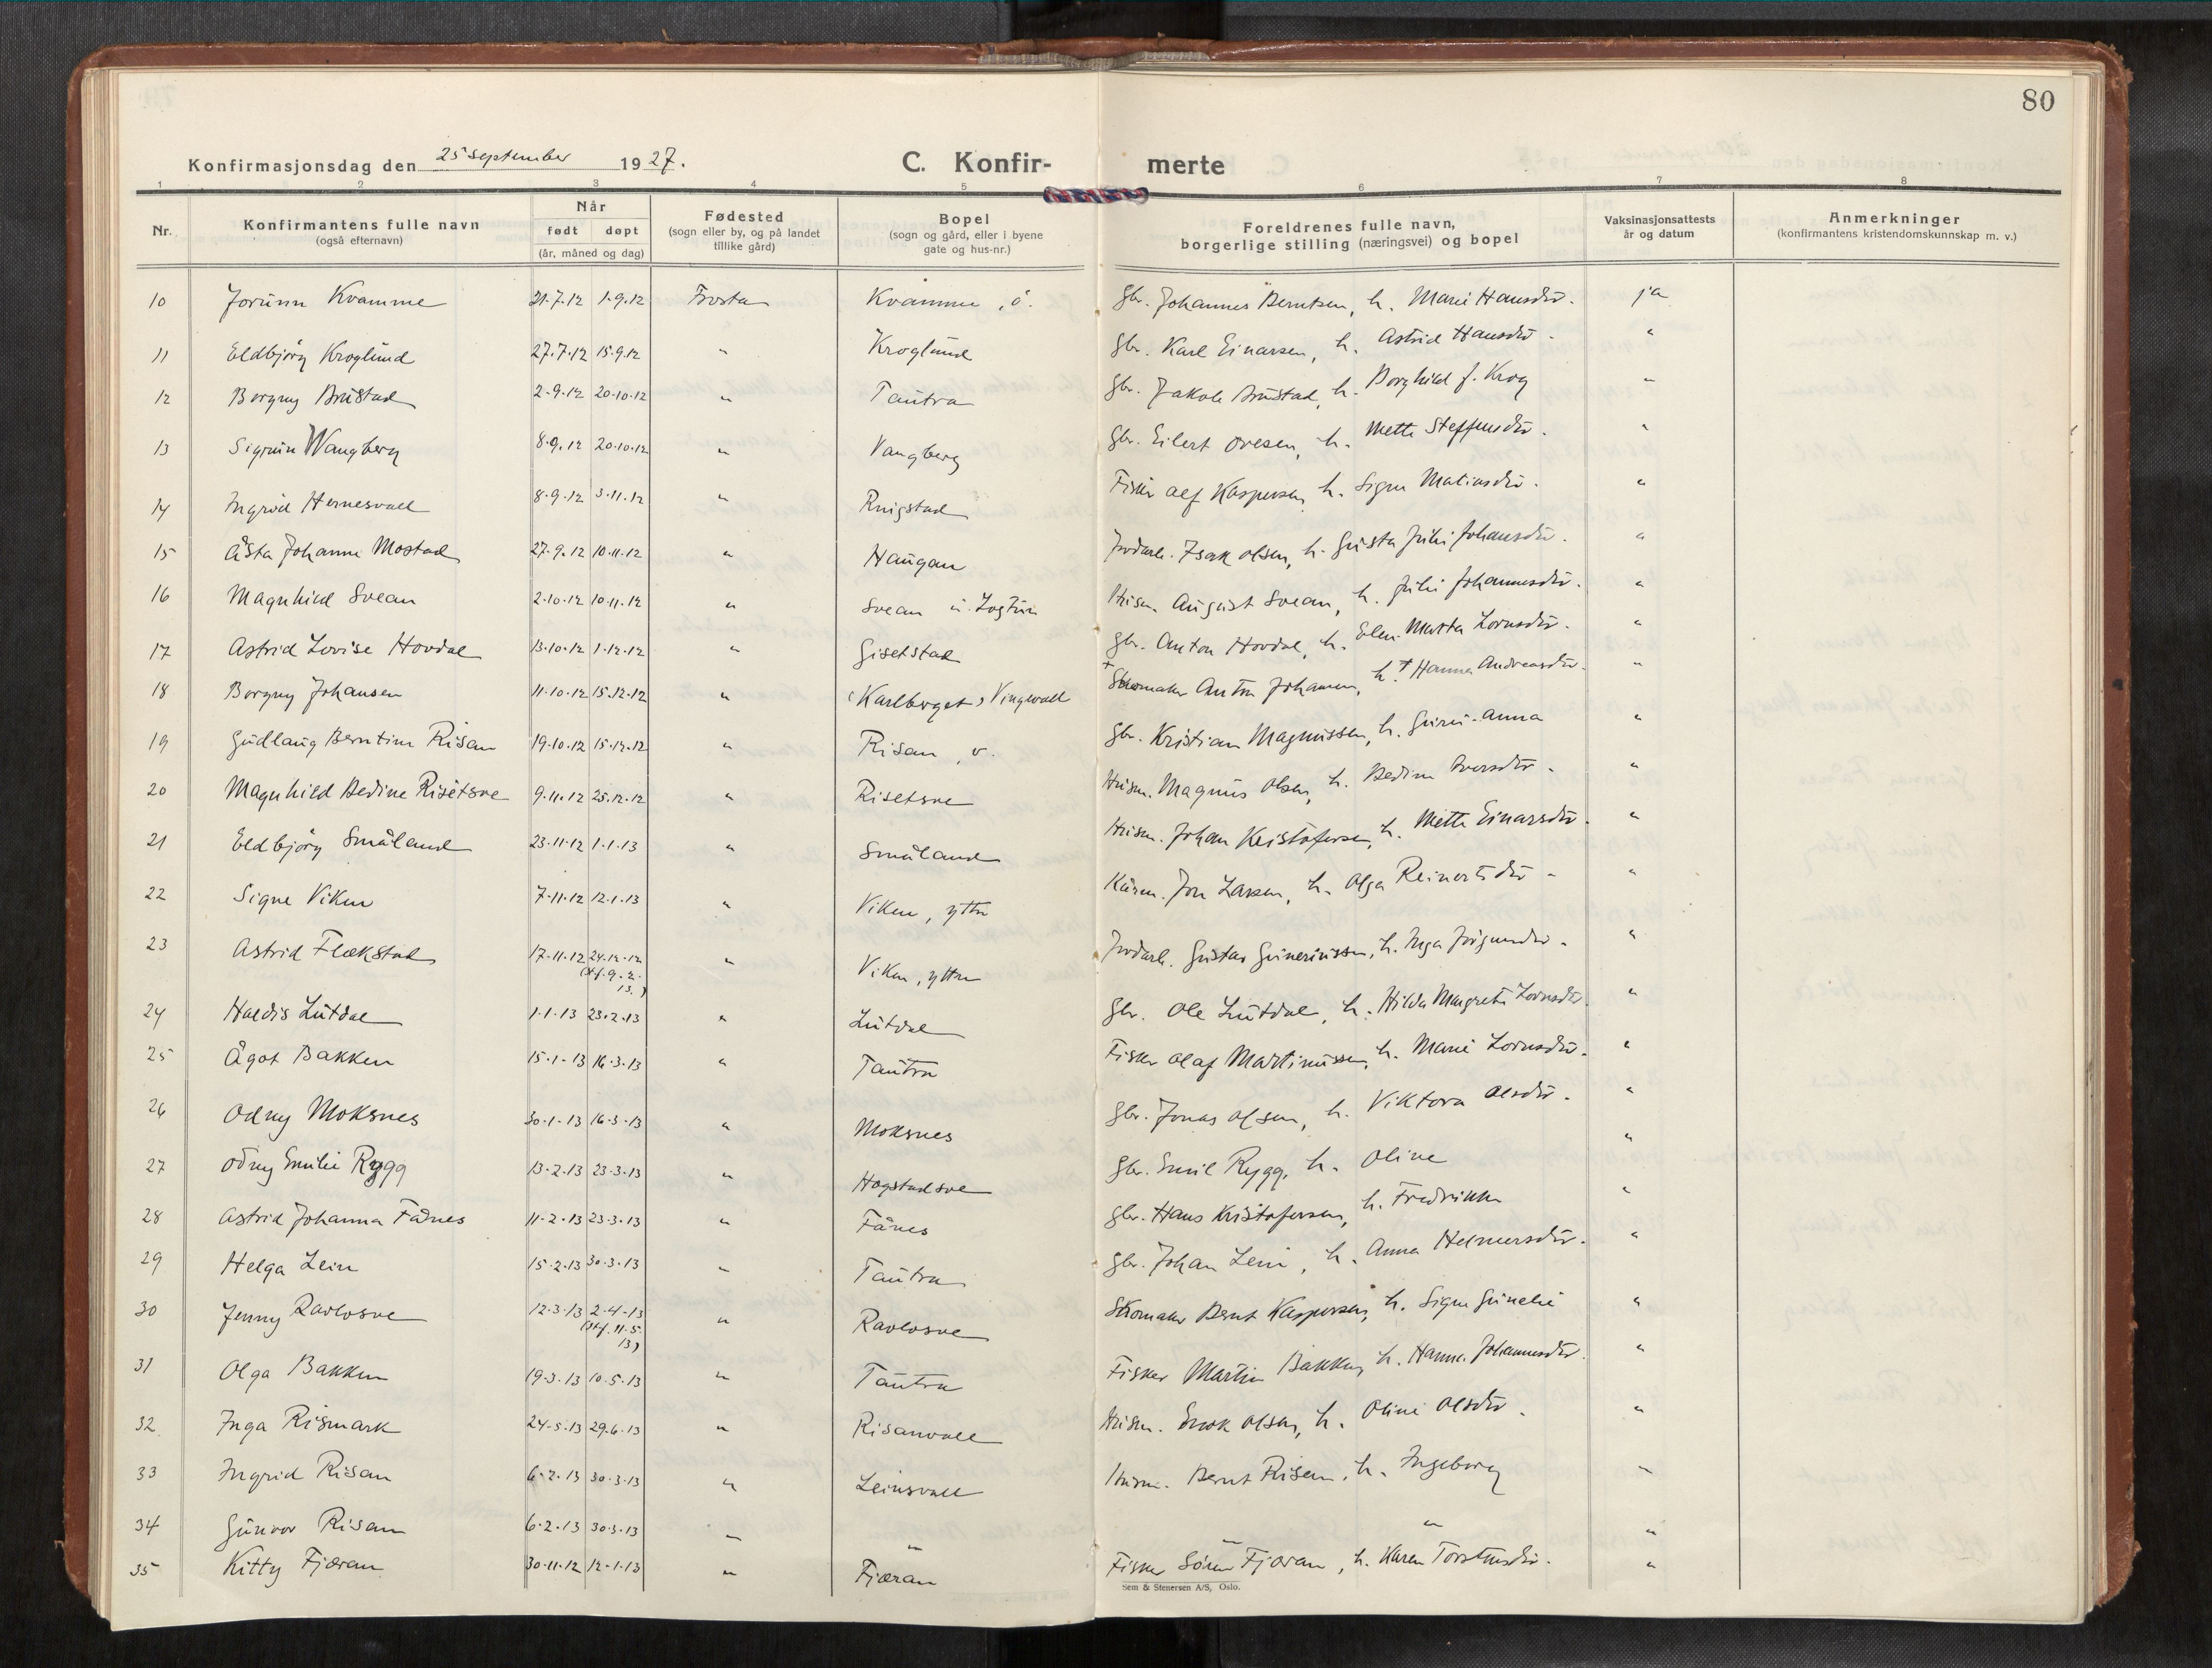 80
Konfirmasjonsdag den 25 September 1927. C. Konfir- merte
1 2 3 4 5 6 7 8
Nr. Konfirmantens fulle navn (også efternavn) Når født døpt (år, måned og dag) Fødested (sogn eller by, og på landet tillike gård) Bopel (sogn og gård, eller i byene gate og hus-nr.) Foreldrenes fulle navn, borgerlige stilling (næringsvei) og bopel Vaksinasjonsattests år og datum Anmerkninger (konfirmantens kristendomskunnskap m. v.)
10 Jorunn Kvamme 21.7.12 1.9.12 Frosta Kvamme, ö. Gbr. Johannes Berntsen, h. Marie Hansdtr. ja
11 Eldbjörg Kroglund 27.7.12 15.9.12 " Kroglund Gbr. Karl Einarsen, h. Astrid Hansdtr. "
12 Borgny Brustad 2.9.12 20.10.12 " Tautra Gbr. Jakob Brustad, h. Borghild f. Krog "
13 Sigrun Wangberg 8.9.12 20.10.12 " Vangberg Gbr. Eilert Ovesen, h. Mette Steffensdtr. "
14 Ingrid Hernesvall 8.9.12 3.11.12 " Ringstad Fisker Alf Kaspersen, h. Signe Matiasdtr. "
15 Åsta Johanne Mostad 27.9.12 10.11.12 " Haugan Jordarb. Isak Olsen, h. Gusta Julie Johansdtr. "
16 Magnhild Svean 2.10.12 10.11.12 " Svean u. Logtun Husm. August Svean, h. Julie Johannesdtr. "
17 Astrid Lovise Hovdal 13.10.12 1.12.12 " Gisetstad Gbr. Anton Hovdal, h. Elen Marta Lornsdtr. "
18 Borgny Johansen 11.10.12 15.12.12 " (Karlberget) Vingvall † Skomaker Anton Johansen, h. † Hanna Andreasdtr. "
19 Gudlaug Berntine Risan 19.10.12 15.12.12 " Risan, v. Gbr. Kristian Magnussen, h. Guru-Anna "
20 Magnhild Bedine Risetsve 9.11.12 25.12.12 " Risetsve Husm. Magnus Olsen, h. Bedine Iversdtr. "
21 Eldbjörg Småland 23.11.12 1.1.13 " Småland Husm. Johan Kristofersen, h. Mette Einarsdtr. "
22 Signe Viken 7.11.12 12.1.13 " Viken, yttre Kårm. Jon Larsen, h. Olga Reinertsdtr. "
23 Astrid Flækstad 17.11.12 24.12.12 " Viken, yttre Jordarb. Gustav Guneriussen, h. Inga Jörgensdtr. "
(stf. 9.2.
13.)
24 Haldis Lutdal 1.1.13 23.2.13 " Lutdal Gbr. Ole Lutdal, h. Hilda Margrete Lornsdtr. "
25 Ågot Bakken 15.1.13 16.3.13 " Tautra Fisker Olaf Martinussen, h. Marie Lornsdtr. "
26 Odny Moksnes 30.1.13 16.3.13 " Moksnes Gbr. Jonas Olsen, h. Viktora Olsdtr. "
27 Odny Emilie Rygg 13.2.13 23.3.13 " Hogstadsve Gbr. Emil Rygg, h. Oline "
28 Astrid Johanna Fånes 11.2.13 23.3.13 " Fånes Gbr. Hans Kristofersen, h. Fredrikke "
29 Helga Lein 15.2.13 30.3.13 " Tautra Gbr. Johan Lein, h. Anna Helmersdtr. "
30 Jenny Ravlosve 12.3.13 2.4.13 " Ravlosve Skomaker Bernt Kaspersen, h. Signe Gunelie "
(stf. 11.5.
13)
31 Olga Bakken 19.3.13 10.5.13 " Tautra Fisker Martin Bakken, h. Hanna Johannesdtr. "
32 Inga Rismark 24.5.13 29.6.13 " Risanvall Husm. Enok Olsen, h. Oline Olsdtr. "
33 Ingrid Risan 6.2.13 30.3.13 " Leinsvall Husm. Bernt Risan, h. Ingeborg "
34 Gunvor Risan 6.2.13 30.3.13 " " " "
35 Kitty Fjæran 30.11.12 12.1.13 " Fjæran Fisker Sören Fjæran, h. Karen Torstensdtr. "
Sem & Stenersen A/S, Oslo.